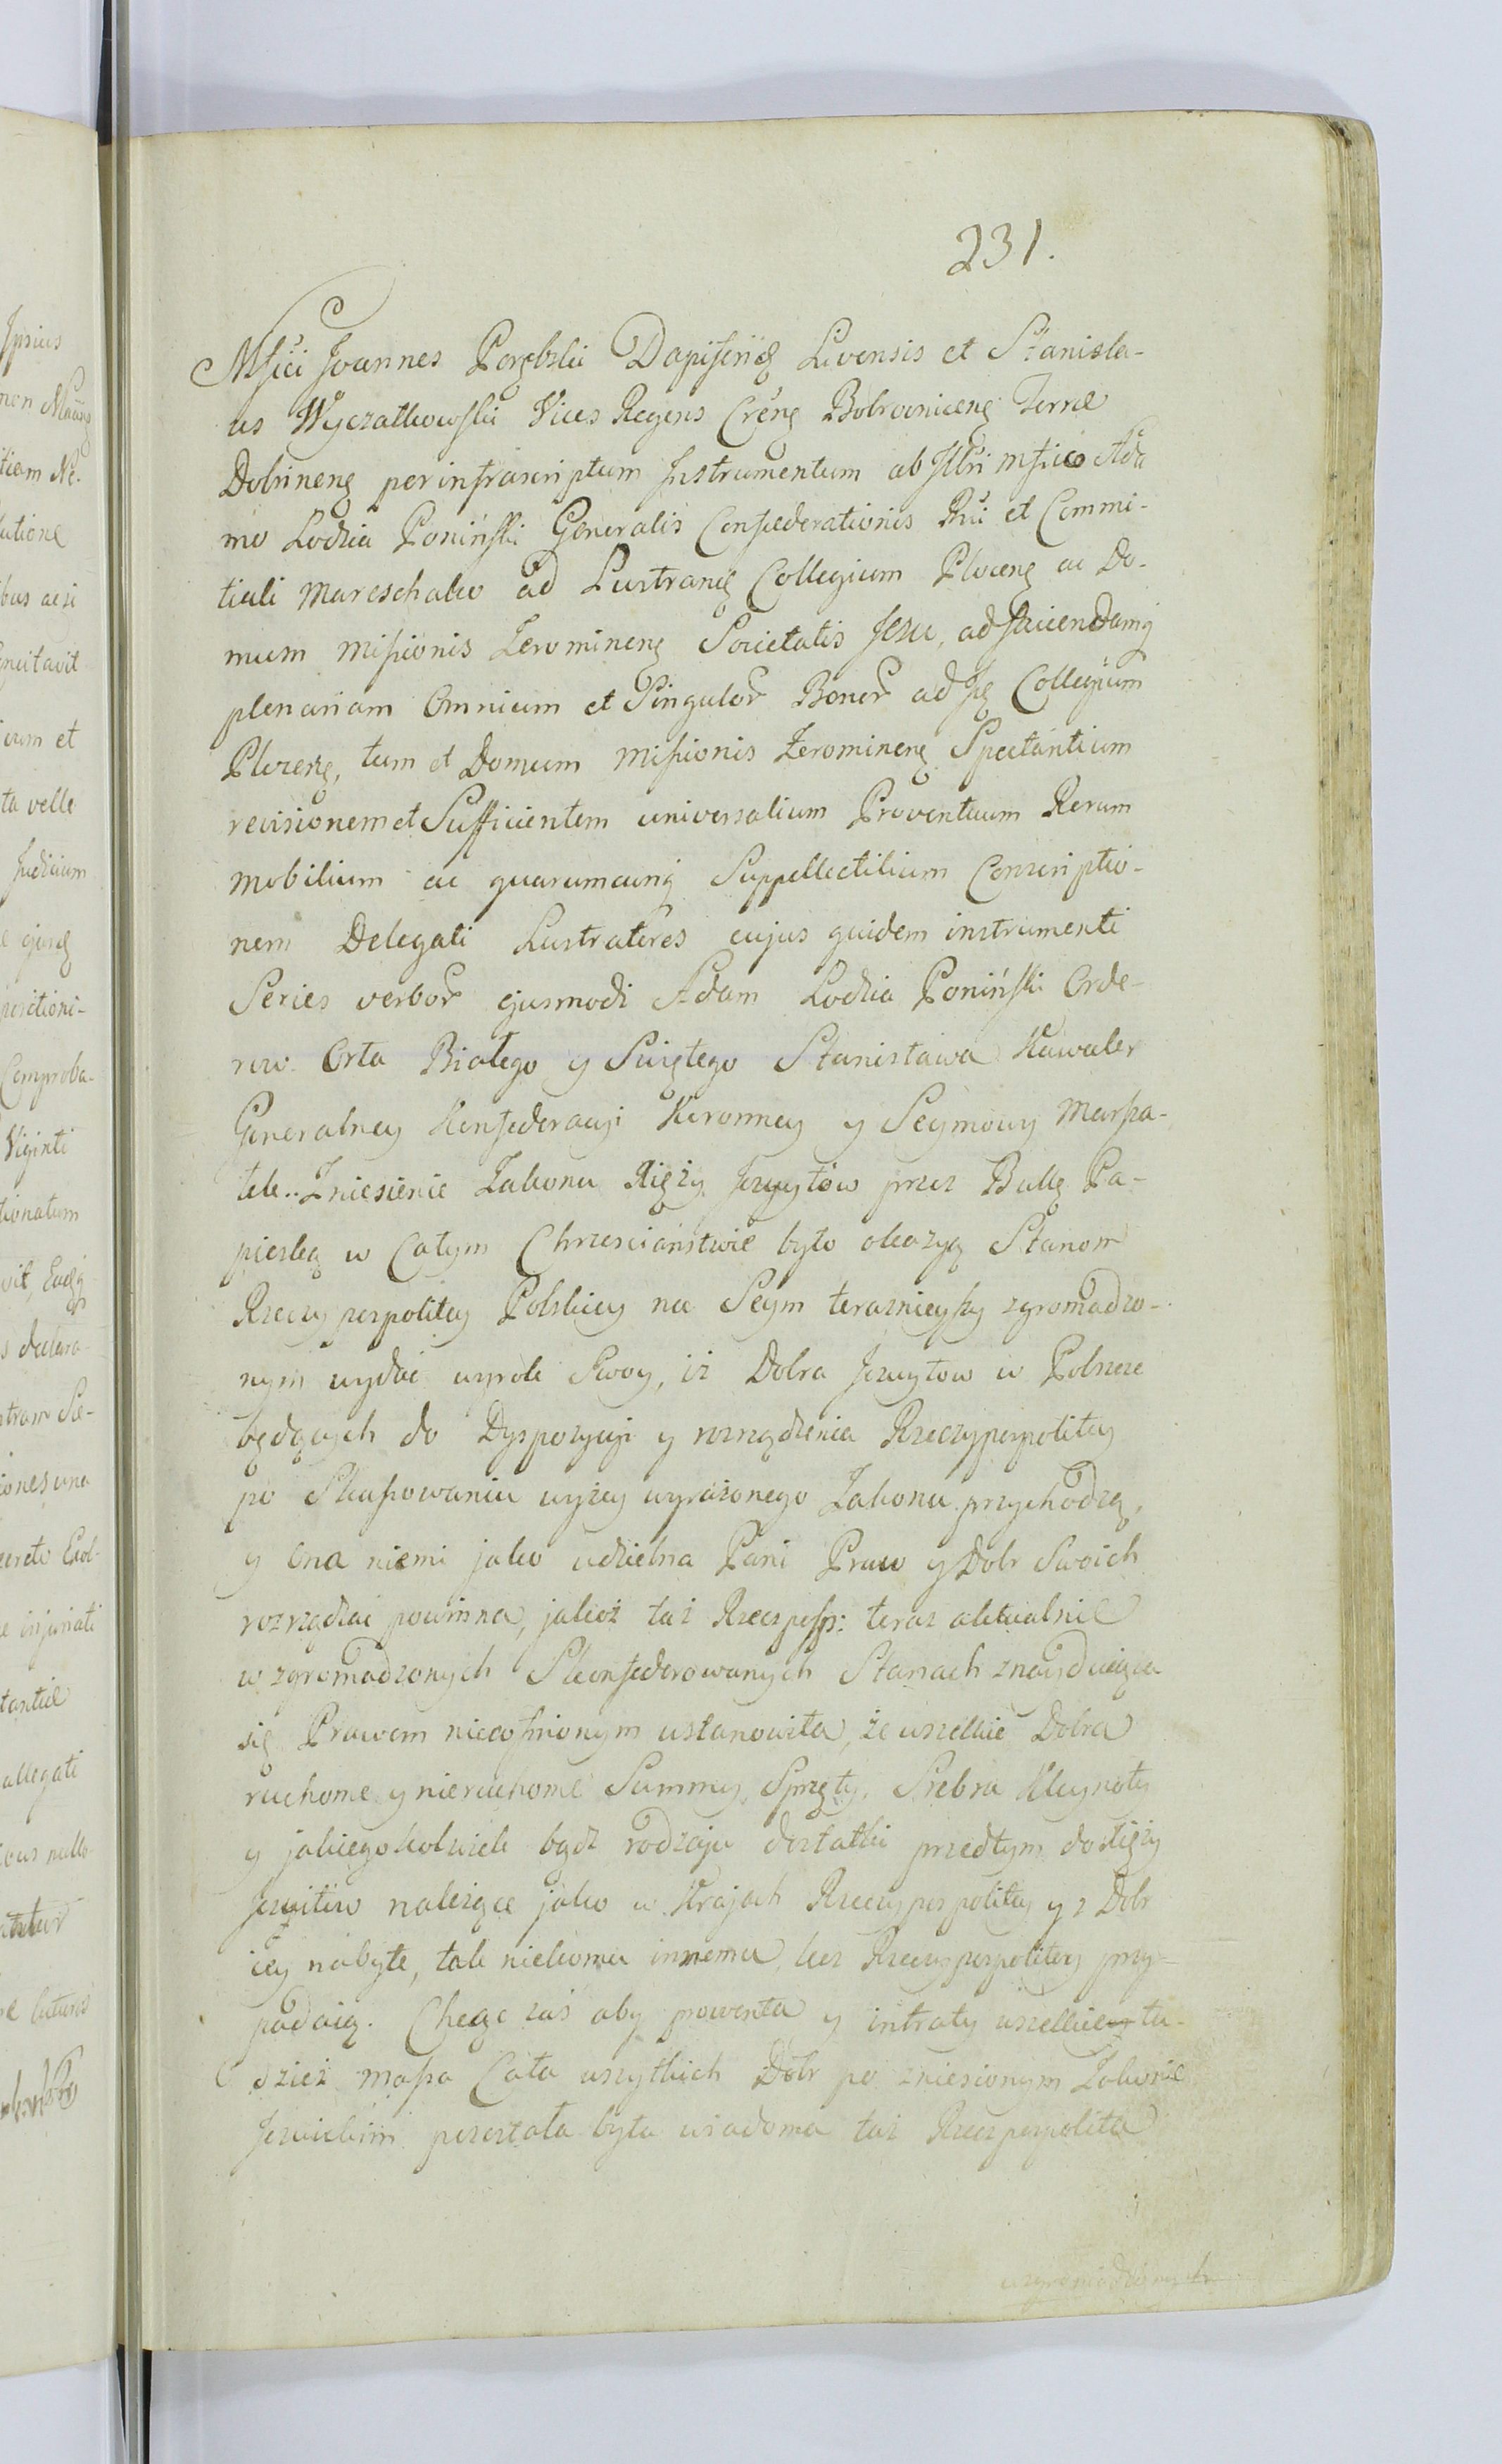 231.
Mfici Joannes Porębski Dapiferiig Livensis et Stanisla-
us Wyczałkowski Vices Regens Crẽng Bobrowniceng Terræ
Dobrineng per infrascriptum Instrumentum ab Illri mfico Ada
mo Lodzia Poniński Generalis Confæderationis Rni et Commi-
tiali Mareschalco ad Lustrang Collegium Ploceng ac Do-
mum missionis Żeromineng Societatis Jesu, ad faciendamq
plenariam Omnium et Singulor Bonor ad Ig Collegium
Ploceng, tum et Domum missionis Żeromineng Spectantium
revisionem et Sufficientem universalium Proventuum Rerum
mobilium ac quarumcunq Suppellectilium Conscriptio-
nem Delegati Lustratores cujus quidem instrumenti
Series verbor ejusmodi Adam Lodzia Poniński Orde-
row Orła Białego y Swiętego Stanisława Kawaler
Generalney Konfederacyi Koronney y Seymowy Marsza-
łek.. Zniesienie Zakonu Xięży Jezuytow przez Bullę Pa-
pieską w Całym Chrzescianstwie było okazyą Stanom
Rzeczypospolitey Polskiey na Seym teraznieyszy zgromadzo-
nym wydać wyrok Swoy, iż Dobra Jezuytow w Polszcze
będących do Dyspozycyi y rozrządzenia Rzeczypospolitey
po Skassowaniu wyżey wyrażonego Zakonu przychodzą,
y Ona niemi jako udzielna Pani Praw y Dobr Swoich
rozrządzać powinna, jakoż taż Rzeczposp: teraz aktualnie
w zgromadzonych Skonfederowanych Stanach znayduiąca
się Prawem niecofnionym ustanowiła, że wszelkie Dobra
ruchome y nieruchome Summy, Sprzęty, Srebra Kleynoty
y jakiegokolwiek bądz rodzaju dostatki przedtym do Xięży
Jezuitow należące jako w Krajach Rzeczypospolitey y z Dobr
iey nabyte, tak niekomu innemu, lecz Rzeczypospolitey przy-
padaią. Chcąc zaś aby prowenta y intraty wszelkie tu-
dzież massa Cała wszytkich Dobr po zniesionym Zakonie
Jezuickim pozostała była wiadoma taż Rzeczpospolita
wzgromadzonych